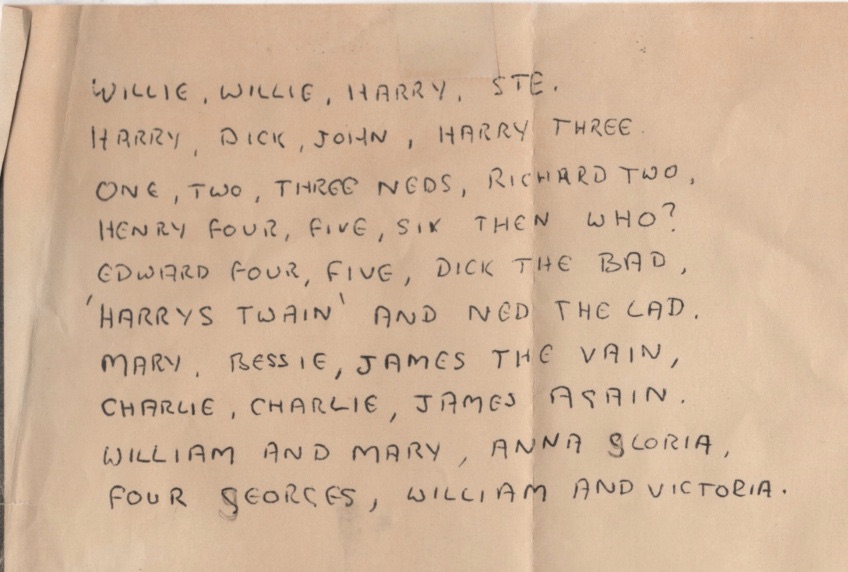 WILLIE, WILLIE, HARRY, STE.
HARRY, DICK, JOHN, HARRY THREE.
ONE, TWO, THREE NEDS, RICHARD TWO,
HENRY FOUR, FIVE, SIX THEN WHO?
EDWARD FOUR, FIVE, DICK THE BAD,
'HARRYS TWAIN' AND NED THE LAD.
MARY, BESSIE, JAMES THE VAIN,
CHARLIE, CHARLIE, JAMES AGAIN.
WILLIAM AND MARY, ANNA GLORIA,
FOUR GEORGES, WILLIAM AND VICTORIA.